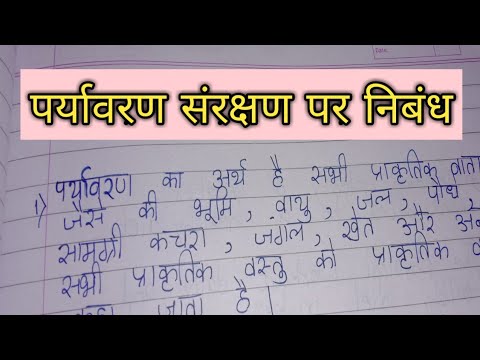 पर्यावरण संरक्षण पर निबंध
1) पर्यावरण का अर्थ है सभी प्राकृतिक वाता
जैसे की भूमि, वायु, जल, पौधे,
सामग्री कचरा, जंगल, खेत और अन
सभी प्राकृतिक वस्तु को प्राकृतिक
जाता है।